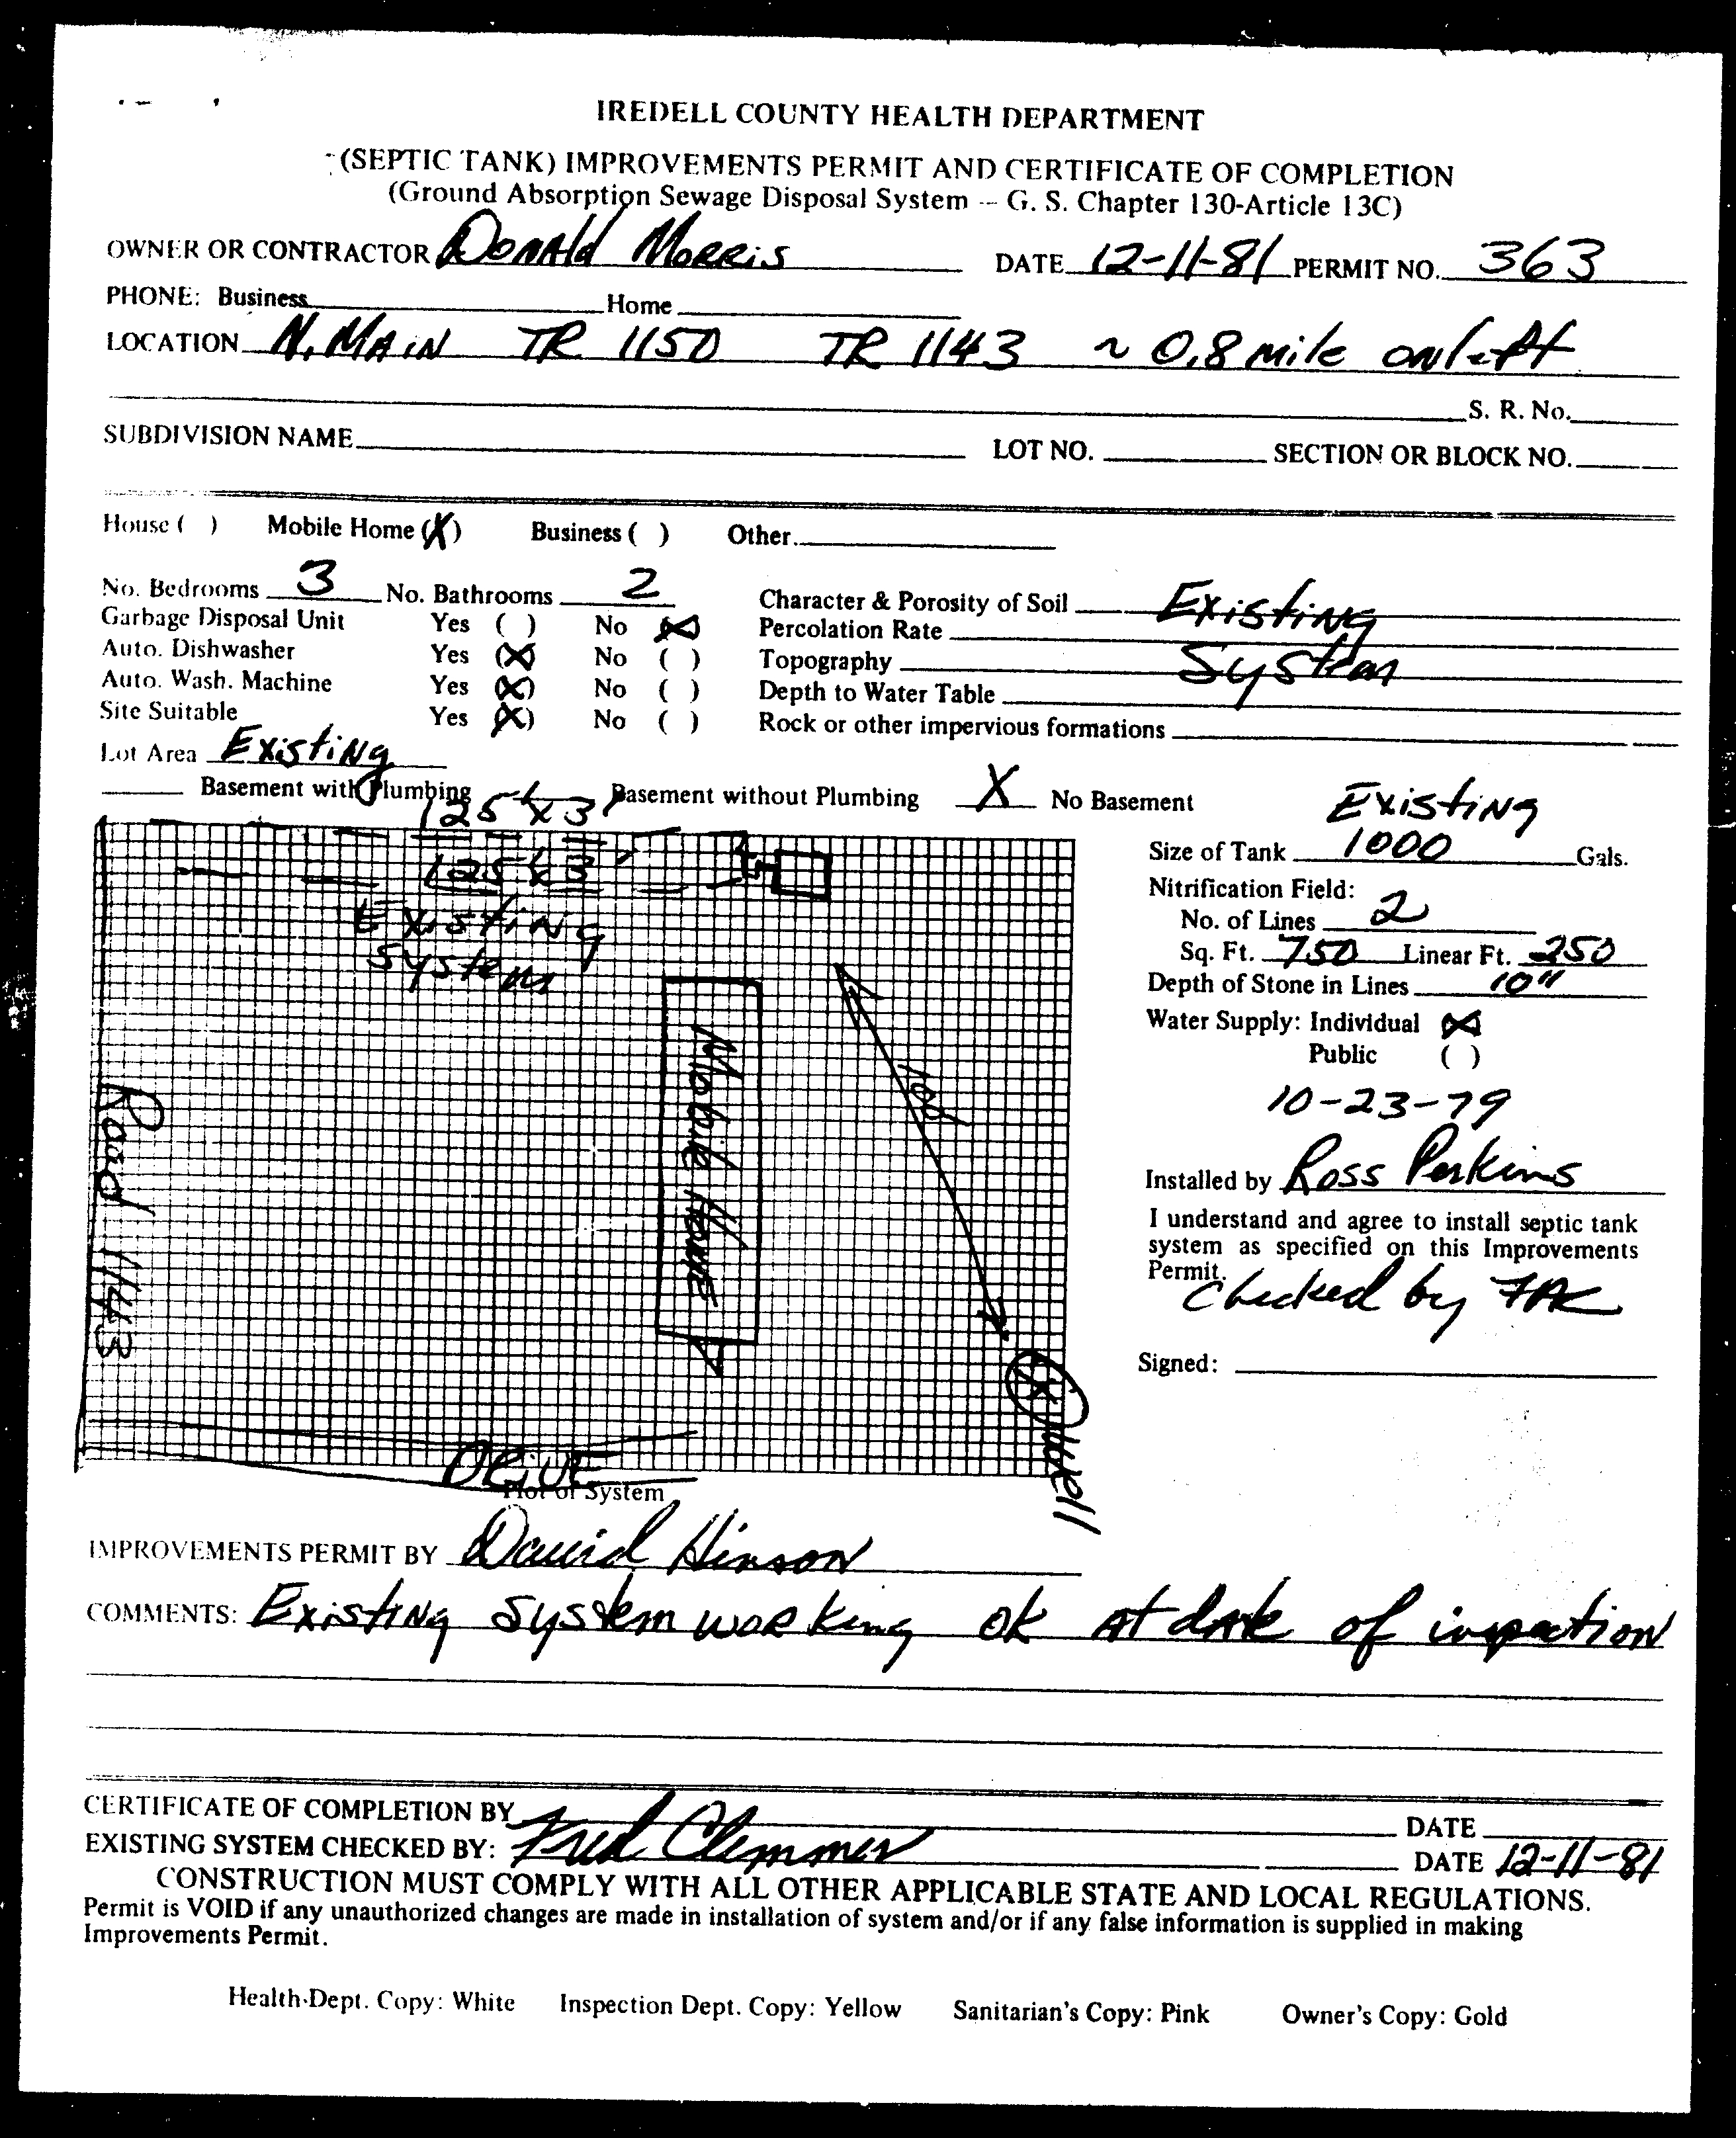 IREDELL COUNTY HEALTH DEPARTMENT
(SEPTIC TANK) IMPROVEMENTS PERMIT AND CERTIFICATE OF COMPLETION
(Ground Absorption Sewage Disposal System -- G. S. Chapter 130-Article 13C)
OWNER OR CONTRACTOR Donald Morris DATE 12-11-81 PERMIT NO. 363
PHONE: Business Home
LOCATION N. MAIN TR 1150 TR 1143 ~ 0.8 mile on left
S. R. No.
SUBDIVISION NAME LOT NO. SECTION OR BLOCK NO.
House ( ) Mobile Home (X) Business ( ) Other
No. Bedrooms 3 No. Bathrooms 2 Character & Porosity of Soil Existing
Garbage Disposal Unit Yes ( ) No (X) Percolation Rate
Auto. Dishwasher Yes (X) No ( ) Topography System
Auto. Wash. Machine Yes (X) No ( ) Depth to Water Table
Site Suitable Yes (X) No ( ) Rock or other impervious formations
Lot Area Existing
Basement with Plumbing Basement without Plumbing X No Basement
125' x 3'
125 x 3'
Existing
System
Mobile Home
100'
Road 1143
X well
Drive
Plot of System
Existing
Size of Tank 1000 Gals.
Nitrification Field:
No. of Lines 2
Sq. Ft. 750 Linear Ft. 250
Depth of Stone in Lines 10"
Water Supply: Individual (X)
Public ( )
10-23-79
Installed by Ross Perkins
I understand and agree to install septic tank
system as specified on this Improvements
Permit.
Checked by FAC
Signed:
IMPROVEMENTS PERMIT BY David Hinson
COMMENTS: Existing System working ok at date of inspection
CERTIFICATE OF COMPLETION BY DATE
EXISTING SYSTEM CHECKED BY: Fred Clemmer DATE 12-11-81
CONSTRUCTION MUST COMPLY WITH ALL OTHER APPLICABLE STATE AND LOCAL REGULATIONS.
Permit is VOID if any unauthorized changes are made in installation of system and/or if any false information is supplied in making
Improvements Permit.
Health Dept. Copy: White Inspection Dept. Copy: Yellow Sanitarian's Copy: Pink Owner's Copy: Gold